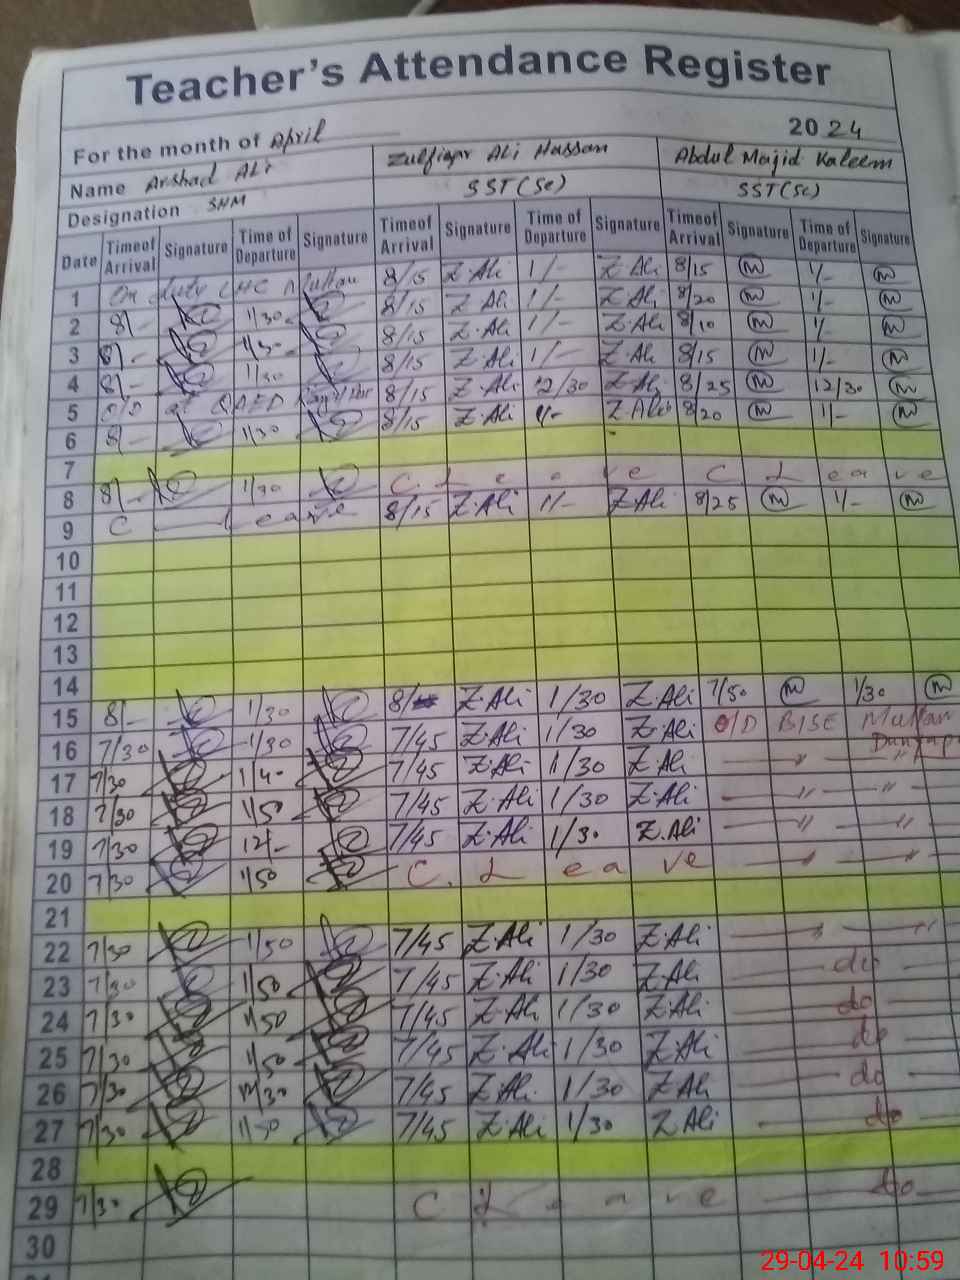 Teacher's Attendance Register
For the month of April 2024
Name Arshad Ali Zulfiqar Ali Hassan Abdul Majid Kaleem
Designation SHM SST(Sc) SST(Sc)
Date Time of Arrival Signature Time of Departure Signature Time of Arrival Signature Time of Departure Signature Time of Arrival Signature Time of Departure Signature
1 On duty LHC Multan 8/15 Z.Ali 1/- Z.Ali 8/15 M 1/- M
2 8/- 1/30 8/15 Z Ali 1/- Z Ali 8/20 M 1/- M
3 8/- 1/30 8/15 Z.Ali 1/- Z.Ali 8/10 M 1/- M
4 8/- 1/30 8/15 Z.Ali 1/- Z.Ali 8/15 M 1/- M
5 O/D at QAED 8/15 Z.Ali 12/30 Z.Ali 8/25 M 12/30 M
6 8/- 1/30 8/15 Z.Ali 1/- Z.Ali 8/20 M 1/- M
7
8 8/- 1/30 C. Leave C Leave
9 C Leave 8/15 Z.Ali 1/- Z.Ali 8/25 M 1/- M
10
11
12
13
14
15 8/- 1/30 8/ Z.Ali 1/30 Z.Ali 7/50 M 1/30 M
16 7/30 1/30 7/45 Z.Ali 1/30 Z.Ali O/D BISE Multan
17 7/30 1/40 7/45 Z.Ali 1/30 Z.Ali — " — "
18 7/30 1/50 7/45 Z.Ali 1/30 Z.Ali — " — "
19 7/30 12/- 7/45 Z.Ali 1/30 Z.Ali — " — "
20 7/30 1/50 C. Leave — " — "
21
22 7/30 1/50 7/45 Z.Ali 1/30 Z.Ali — " — "
23 7/30 1/50 7/45 Z.Ali 1/30 Z.Ali — do —
24 7/30 1/50 7/45 Z.Ali 1/30 Z.Ali — do —
25 7/30 1/50 7/45 Z.Ali 1/30 Z.Ali — do —
26 7/30 7/45 Z.Ali 1/30 Z.Ali — do —
27 7/30 1/50 7/45 Z.Ali 1/30 Z Ali — do —
28
29 7/30 C. Leave — do —
30
29-04-24 10:59